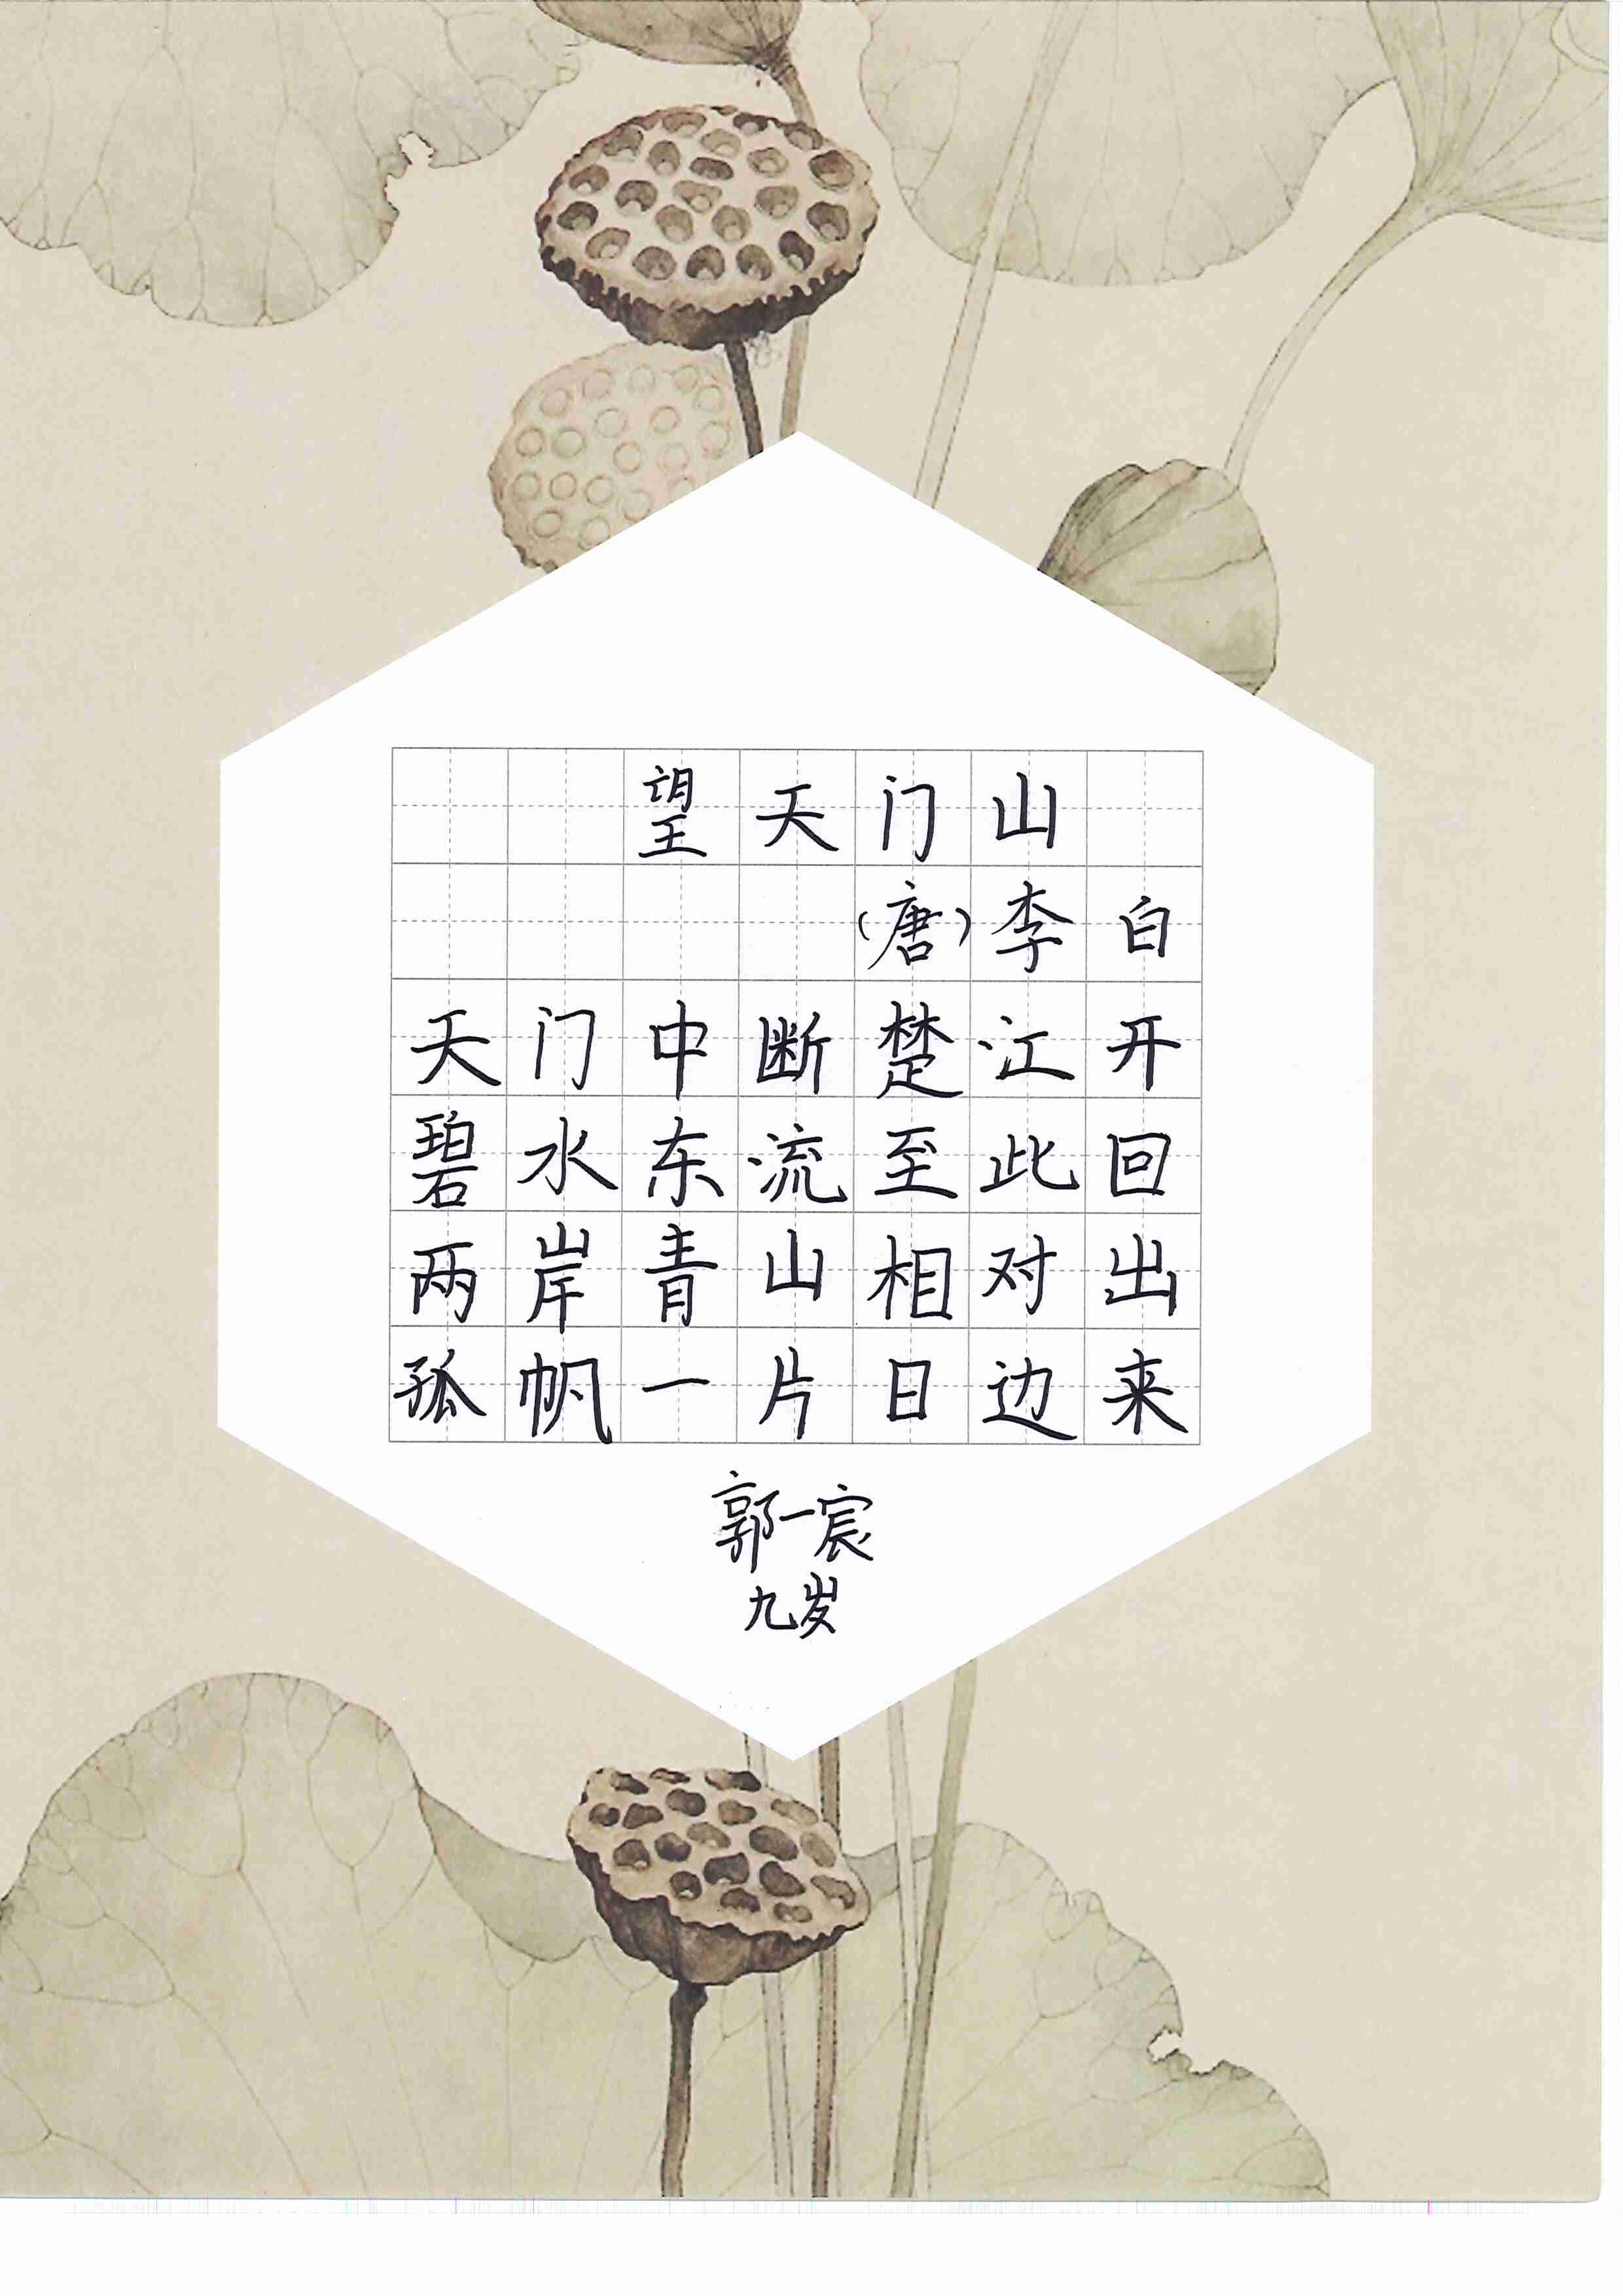 望天门山
(唐)李白
天门中断楚江开
碧水东流至此回
两岸青山相对出
孤帆一片日边来
郭一宸
九岁